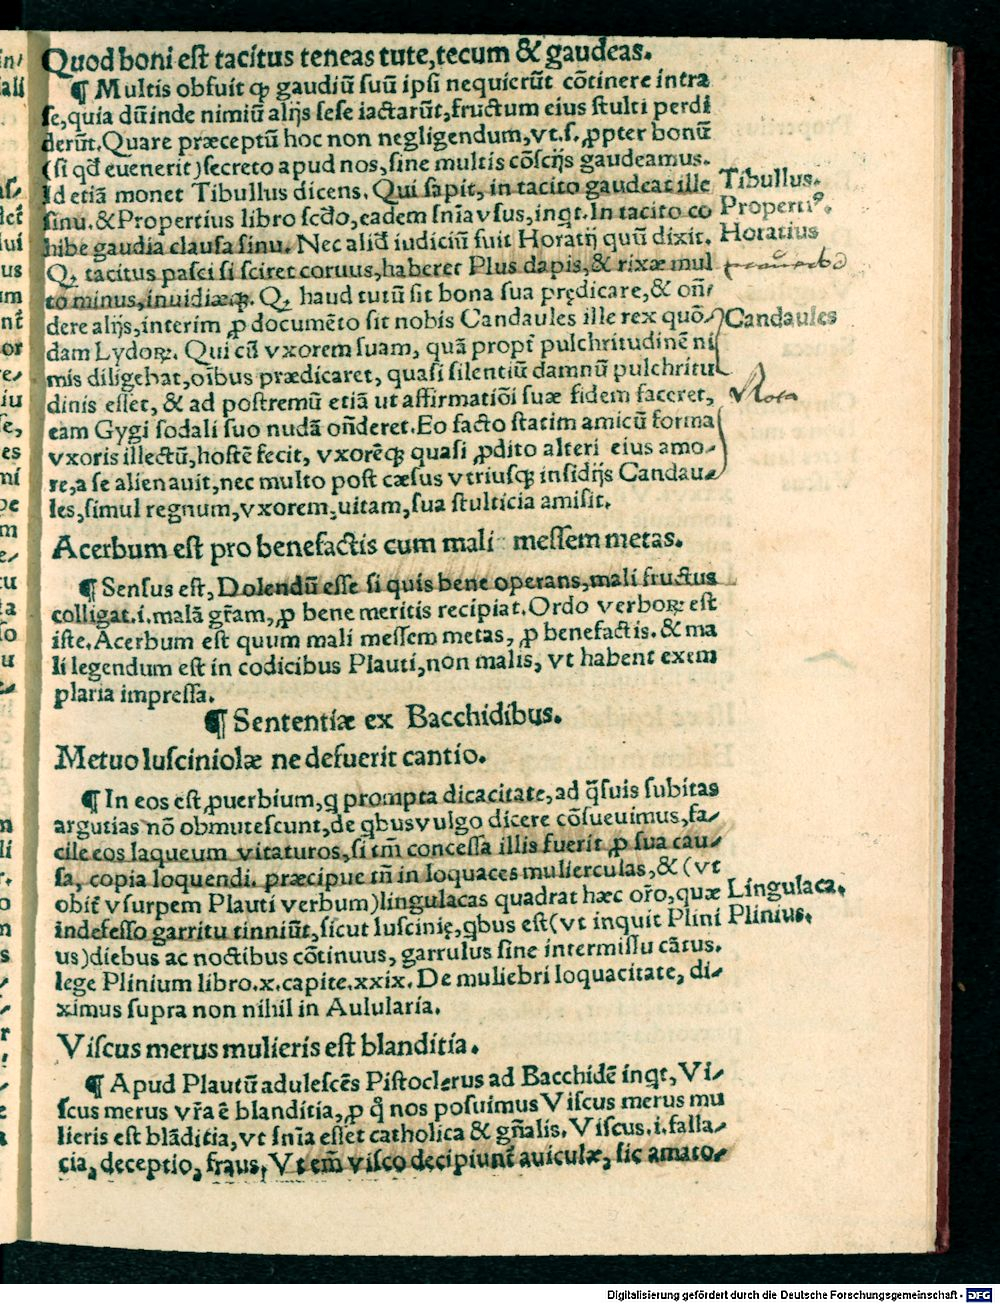 Quod boni est tacitus teneas tute, tecum & gaudeas.
¶ Multis obfuit qꝫ gaudiũ suũ ipsi nequierũt cõtinere intra
se, quia dũ inde nimiũ alijs sese iactarũt, fructum eius stulti perdi
derũt. Quare præceptũ hoc non negligendum, vt .s. ꝓpter bonũ
(si qd̃ euenerit) secreto apud nos, sine multis cõscijs gaudeamus.
Id etiã monet Tibullus dicens. Qui sapit, in tacito gaudeat ille
sinu. & Propertius libro scd̃o, eadem sñia vsus, inqt. In tacito co
hibe gaudia clausa sinu. Nec aliđ iudiciũ fuit Horatij quũ dixit.
Qꝫ tacitus pasci si sciret coruus, haberet Plus dapis, & rixæ mul
to minus, inuidiæqꝫ. Qꝫ haud tutũ sit bona sua prędicare, & oñ⸗
dere alijs, interim ꝓ documẽto sit nobis Candaules ille rex quõ⸗
dam Lydoꝝ. Qui cũ vxorem suam, quã propt̃ pulchritudinẽ ni
mis diligebat, oĩbus prædicaret, quasi silentiũ damnũ pulchritu
dinis esset, & ad postremũ etiã ut affirmatiõi suæ fidem faceret,
eam Gygi sodali suo nudã oñderet. Eo facto statim amicũ forma
vxoris illectũ, hostẽ fecit, vxorẽqꝫ quasi ꝓdito alteri eius amo⸗
re, a se alienauit, nec multo post cæsus vtriusqꝫ insidijs Candau⸗
les, simul regnum, vxorem, uitam, sua stulticia amisit.
Tibullus.
Propertiꝰ.
Horatius
Candaules
Nota
Acerbum est pro benefactis cum mali messem metas.
¶ Sensus est, Dolendũ esse si quis bene operans, mali fructus
colligat .i. malã gr̃am, ꝓ bene meritis recipiat. Ordo verboꝝ est
iste. Acerbum est quum mali messem metas, ꝓ benefactis. & ma
li legendum est in codicibus Plauti, non malis, vt habent exem
plaria impressa.
¶ Sententiæ ex Bacchidibus.
Metuo lusciniolæ ne defuerit cantio.
¶ In eos est ꝓuerbium, q prompta dicacitate, ad q̃suis subitas
argutias nõ obmutescunt, de qbus vulgo dicere cõsueuimus, fa⸗
cile eos laqueum vitaturos, si tm̃ concessa illis fuerit ꝓ sua cau⸗
sa, copia loquendi. præcipue tñ in loquaces mulierculas, & (vt
obit̃ vsurpem Plauti verbum) lingulacas quadrat hæc or̃o, quæ
indefesso garritu tinniũt, sicut luscinię, qbus est (vt inquit Plini
us) diebus ac noctibus cõtinuus, garrulus sine intermissu cãtus.
lege Plinium libro .x. capite .xxix. De muliebri loquacitate, di⸗
ximus supra non nihil in Aulularia.
Lingulaca.
Plinius.
Viscus merus mulieris est blanditia.
¶ Apud Plautũ adulescẽs Pistoclerus ad Bacchidẽ inqt, Vi⸗
scus merus vr̃a ẽ blanditia, ꝓ q̃ nos posuimus Viscus merus mu
lieris est blãditia, vt sñia esset catholica & gñalis. Viscus .i. falla⸗
cia, deceptio, fraus. Vt em̃ visco decipiunt̃ auiculæ, sic amato⸗
Digitalisierung gefördert durch die Deutsche Forschungsgemeinschaft - DFG